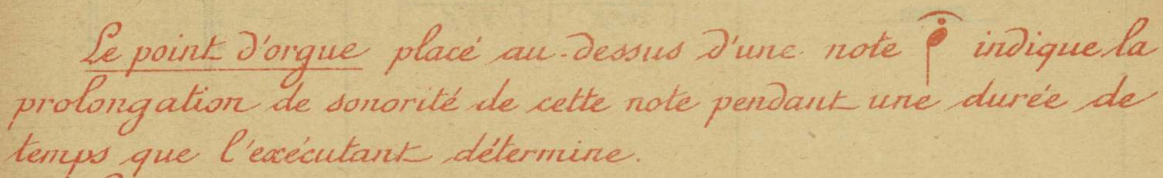 Le point d'orgue placé au-dessus d'une note 𝄐 indique la
prolongation de sonorité de cette note pendant une durée de
temps que l'exécutant détermine.